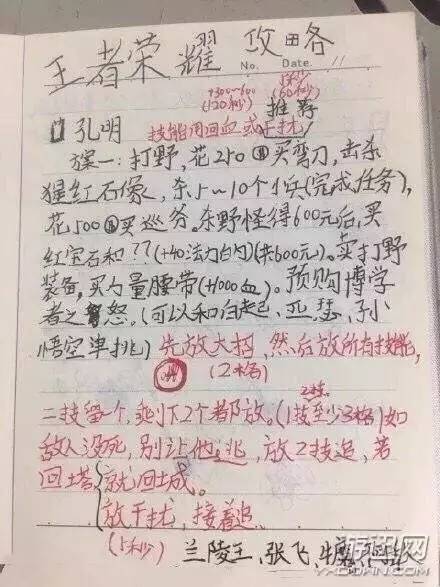 王者荣耀 攻略
No. Date. 11
+300~600 5秒
(120秒) (60秒)
推荐
孔明 技能用回血或干扰
方案一:打野,花250买弯刀,击杀
猩红石像,杀5~10个小兵(完成任务),
花500买巡夯。杀野怪得600元后,买
红宝石和??(+40法力白内)(集600元)。买打野
装备,买力量腰带(+1000血)。预购博学
者之怒。(可以和白起、亚瑟、孙
悟空单挑)先放大招,然后放所有技能,
(2格)
2技
二技留一个,剩下2个都放。(1技至少3格)如
敌人没死,别让他逃,放2技追,若
回塔 就回城。
放干扰,接着追
(5秒)
兰陵王、张飞、牛魔、阿轲
游迅网
YXDOWN.COM